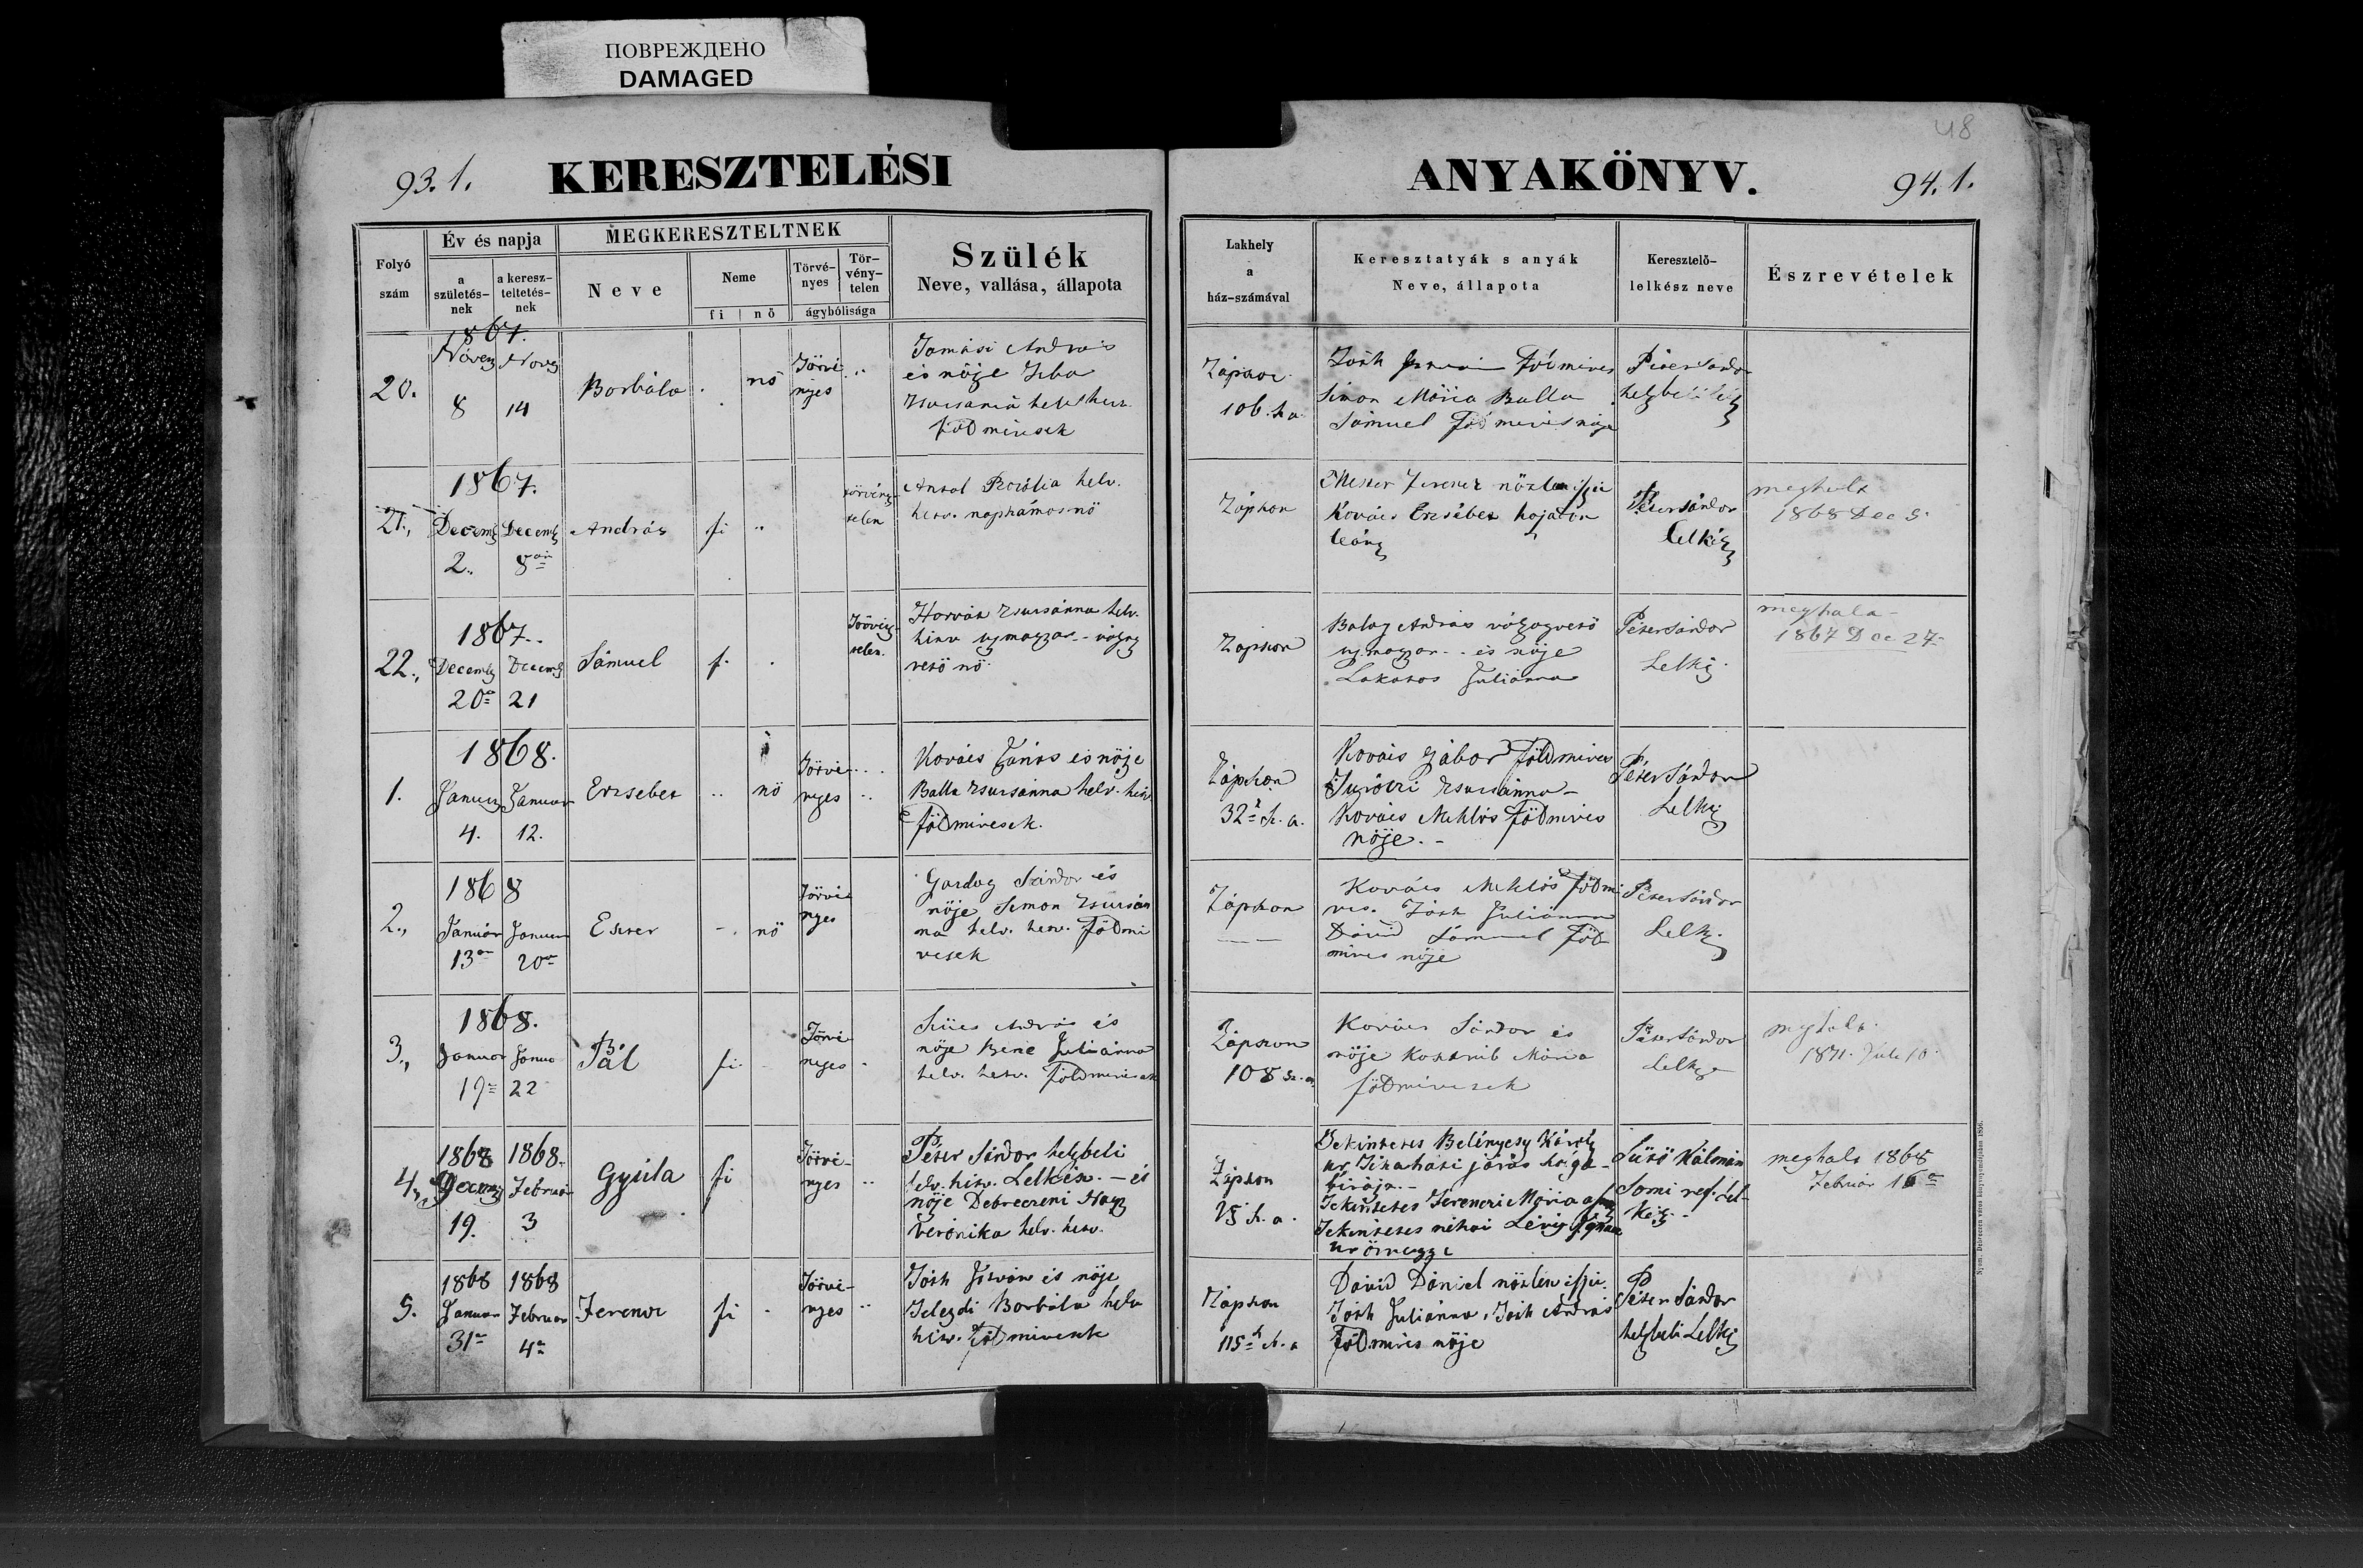 ПОВРЕЖДЕНО
DAMAGED
48
93. l.
KERESZTELÉSI
ANYAKÖNYV.
94. l.
Folyó szám
Év és napja
a születés-nek
a keresz-teltetés-nek
MEGKERESZTELTNEK
Neve
Neme
fi
nő
Törvé-nyes
Tör-vény-telen
ágybólisága
Szülék
Neve, vallása, állapota
Lakhely
a
ház-számával
Keresztatyák s anyák
Neve, állapota
Keresztelő-
lelkész neve
Észrevételek
20.
1867.
Novem
8
14
Borbála
nő
Törvé
nyes
Tamási András
és nője
földmivesek
Zápszon
106. h. a.
Simon Mária Balla
Sámuel Földmives nője
Péter Sándor
helybeli
21.,
1867.
Decemb Decemb
2.
8án
András
fi
törvény
telen
Antal Rozália helv.
hitv. napszámos nő
Zápszon
Mester Ferencz nőtlen ifju
Kovács Erzsébet hajadon
leány
Péter Sándor
Lelkész
meghalt
1868 Dec 9.
22.,
1867.
Decemb Decemb
20
21
Sámuel
f.
Törvény
telen.
Horvát Zsuzsánna helv.
hitv ujmagyar - vályog
vető nő
Zápszon
Balog András vályogvető
ujmagyar - és nője
Lakatos Juliánna
Péter Sándor
Lelkész
meghala
1867 Dec 27
1.
1868.
Január Január
4.
12.
Erzsébet
nő
Törvé
nyes
Kovács János és nője
Balla Zsuzsánna helv. hitv.
földmivesek.
Zápszon
32 h. a.
Kovács Gábor Földmives
Zsuzsánna -
Kovács Miklós Földmives
nője. -
Péter Sándor
Lelkész
2.,
1868
Január Január
13án
20án
Eszter
nő
Törvé
nyes
Gazdag Sándor és
nője Simon Zsuzsán
na helv. hitv. Földmi
vesek
Zápszon
Kovács Miklós földmi
ves. Tóth Juliánna
Dávid Sámuel Föld
mives nője
Péter Sándor
Lelk.
3.,
1868.
Január Január
19
22
Pál
fi.
Törvé
nyes
Szücs András és
nője Bene Juliánna
helv. hitv. Földmivesek
Zápszon
108 sz. a.
Kovács Sándor és
nője Mária
földmivesek
Péter Sándor
Lelkész
meghala
1871. Juli 10.
4.,
1868 1868.
Február
19.
3
Gyula
fi
Törvé-
nyes
Péter Sándor helybeli
helv. hitv. Lelkész. - és
nője Debreczeni Nagy
Veronika helv. hitv.
Zápszon
h. a.
Tekintetes Belényesy Károly
ur Tiszaháti járás szolga-
birája. -
Tekintetes Ferenczi Mária
Tekintetes néhai
ur özvegye
Sütő Kálmán
Somi ref. Lel-
kész -
meghalt 1868
Február 16án
5.
1868 1868
Január Február
31
4
Ferencz
fi
Törvé-
nyes
Tóth István és nője
Telegdi Borbála helv
hitv. Földmivesek
Zápszon
115 h. a
Dávid Dániel nőtlen ifju.
Tóth Juliánna, Tóth András
Földmives nője
Péter Sándor
helybeli Lelkész
Nyom. Debreczen város könyvnyomdájában 1856.